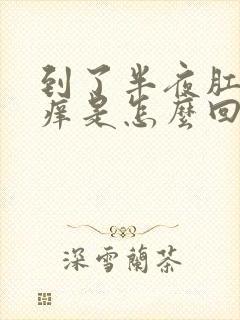 到了半夜肛
痒是怎麼回
深雪蘭茶